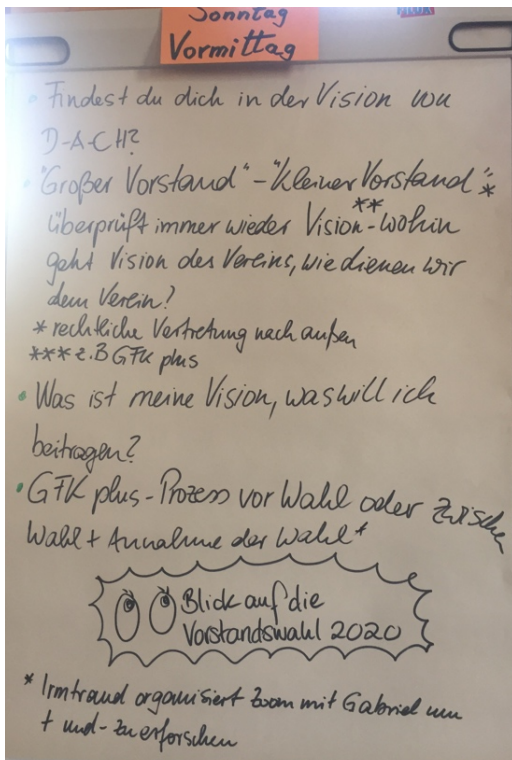 Sonntag
Vormittag
• Findest du dich in der Vision von
D-A-CH?
• "Großer Vorstand" - "Kleiner Vorstand" *
überprüft immer wieder Vision** - wohin
geht Vision des Vereins, wie dienen wir
dem Verein?
* rechtliche Vertretung nach außen
*** z.B GFK plus
• Was ist meine Vision, was will ich
beitragen?
• GFK plus - Prozess vor Wahl oder zwischen
Wahl + Annahme der Wahl +
Blick auf die
Vorstandswahl 2020
* Irmtraud organisiert Zoom mit Gabriel um
+ und - zu erforschen